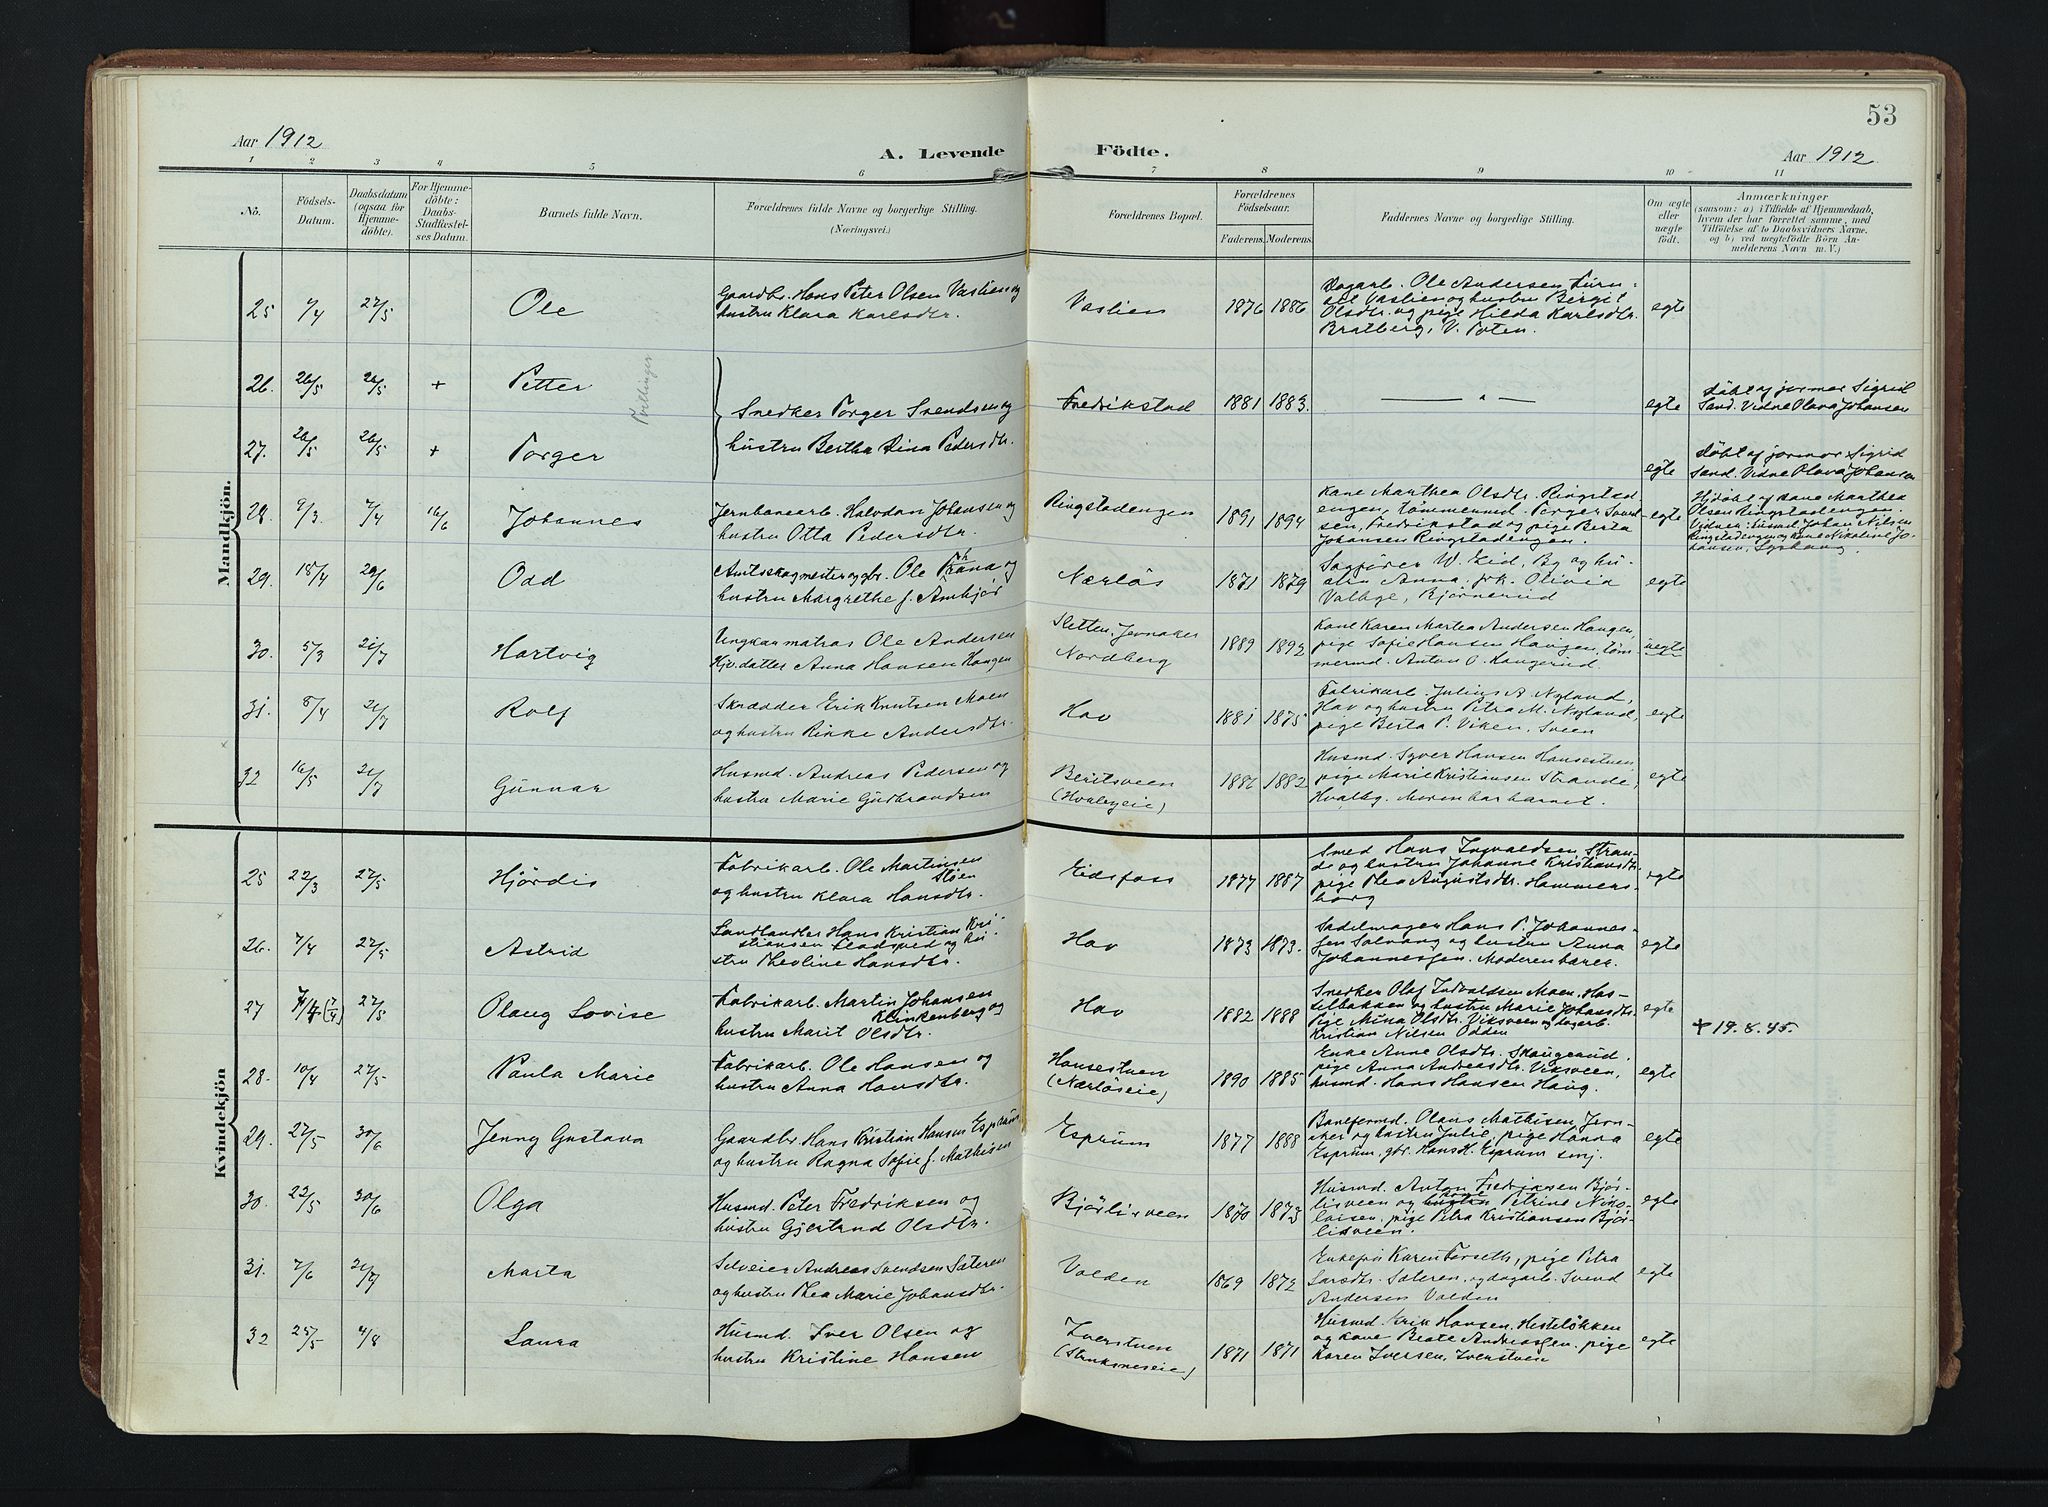 53
Aar 1912
A. Levende
Födte.
Aar 1912
1 2 3 4 5 6 7 8 9 10 11
Nö.
Födsels-
Datum.
Daabsdatum
(ogsaa for
Hjemme-
döbte).
For Hjemme-
döbte:
Daabs-
Stadfæstel-
ses Datum.
Barnets fulde Navn.
Forældrenes fulde Navne og borgerlige Stilling.
(Næringsvei.)
Forældrenes Bopæl.
Forældrenes
Födselsaar.
Faderens. Moderens.
Faddernes Navne og borgerlige Stilling.
Om ægte
eller
uægte
födt.
Anmærkninger
(saasom: a) i Tilfælde af Hjemmedaab,
hvem der har forrettet samme, med
Tilföielse af to Daabsvidners Navne.
og b) ved uægtefödte Börn An-
melderens Navn m. V.)
Mandkjön.
25 1/4 27/5 Ole
Gaardbr. Hans Peter Olsen Vaslien og
hustru Klara Karlsdtr.
Vaslien 1876 1886
Dagarb. Ole Andersen
Vaslien og hustru Bergit
Olsdtr. og pige Hilda Karlsdtr.
Bratberg, V. Toten.
egte
26. 26/5 26/5 + Petter
Tvillinger
Snedker Torger Svendsen og
hustru Bertha Dina Pedersdtr.
Fredrikstad 1881 1883.
— " —
egte
döbt af jormor Sigrid
Sand. Vidne Olava Johansen
27. 26/5 26/5 + Torger
egte
döbt af jormor Sigrid
Sand. Vidne Olava Johansen
28. 9/3. 7/4 16/6 Johannes
Jernbanearb. Halvdan Johansen og
hustru Otta Pedersdtr.
Ringstadengen 1891 1894
Kone Marthea Olsdtr. Ringstad-
engen, tömmermd. Torger Svend-
sen, Fredrikstad og pige Berta
Johansen Ringstadengen.
egte
Hjdöbt af kone Marthea
Olsen Ringstadengen.
Vidner: husmd. Johan Nilsen
Ringstadengen og kone Nikoline Jo-
hansen,
29. 18/4 29/6 Odd
Amtsskogmester og gbr. Ole
hustru Margrethe f.
Nærlös 1871 1879
Sagförer W. Eid, By og hu-
stru Anna, frk. Olivia
Valbye, Björnerud
egte
30. 5/3 21/7 Hartvig
Ungkar matros Ole Andersen
Hjv. datter Anna Hansen Haugen
Sletten, Jevnaker
Nordberg
1889 1892
Kone Karen Martea Andersen Haugen,
pige Sofie Hansen Haugen, töm-
mermd. Anton O. Haugerud.
uegte
31. 8/4 21/7 Rolf
Skrædder Erik Knutsen Moen
og hustru Rikke Andersdtr.
Hov 1881 1875
Fabrikarb. Julius A. Nyland,
Hov og hustru Petra M. Nyland,
pige Berta P. Viken, Sveen
egte
32 16/5 21/7 Gunnar
Husmd. Andreas Pedersen og
hustru Marie Gudbrandsen
Beritsveen
(Hvalbyeie)
1886 1882
Husmd. Syver Hansen Hansestuen,
pige Marie Kristiansen Strande,
Hvalby. Moren bar barnet.
egte
Kvindekjön
25 22/3 27/5 Hjördis
Fabrikarb. Ole Martinsen
Stöen
og hustru Klara Hansdtr.
Eidsfoss 1877 1887
Smed Hans Ingvaldsen Stran-
de og hustru Johanne Kristiansdtr.
pige Thea Augustsdtr. Hammers-
borg
egte
26. 7/4 27/5 Astrid
Landhandler Hans Kristian Kri-
stiansen Fladsved og hu-
stru Thevline Hansdtr.
Hov 1873 1873.
Sadelmager Hans P. Johannes-
sen Solvang og hustru Anna
Johannessen. Moderen barer.
egte
27 7/4 (7/4) 27/5 Olaug Lovise
Fabrikarb. Martin Johansen
Klinkenberg og
hustru Marit Olsdtr.
Hov 1882 1888
Snedker Olaf Indvaldsen Moen, Has-
selbakken og hustru Marie Johansdtr.
Pige Mina Olsdtr. Viksveen og dagarb.
Kristian Nilsen Odden
egte
+ 19.8.45.
28. 10/4 27/5 Paula Marie
Fabrikarb. Ole Hansen og
hustru Anna Hansdtr.
Hansestuen
(Nærlöseie)
1890 1885
Enke Anne Olsdtr. Skaugerud,
pige Anna Andreasdtr. Viksveen,
husmd. Hans Hansen Haug.
egte
29. 27/5 30/6 Jenny Gustava
Gaardbr. Hans Kristian Hansen Esprum
og hustru Ragna Sofie f. Mathisen
Esprum 1877 1888
Baneformd. Olaus Mathisen, Jevn-
aker og hustru Julie, pige Hanna
Esprum, gbr. Hans H. Esprum smj.
egte
30. 22/5 30/6 Olga
Husmd. Peter Fredriksen og
hustru Gjertrud Olsdtr.
Björlisveen 1870 1873
Husmd. Anton Fredriksen Björ-
lisveen og hustru Petrine Niko-
laisen, pige Petra Kristiansen Björ-
lisveen.
egte
31. 7/6 21/7 Marta
Selveier Andreas Svendsen Sæteren
og hustru Thea Marie Johansdtr.
Volden 1869 1872
Enkefru Karen Forseth, pige Petra
Larsdtr. Sæteren, og dagarb. Svend
Andersen Volden
egte
32 25/5 4/8 Laura
Husmd. Iver Olsen og
hustru Kristine Hansen
Iverstuen
1871 1871
Husmd. Erik Hansen, Hestelökken
og kone Beate Andreassen, pige
Karen Iversen, Iverstuen
egte